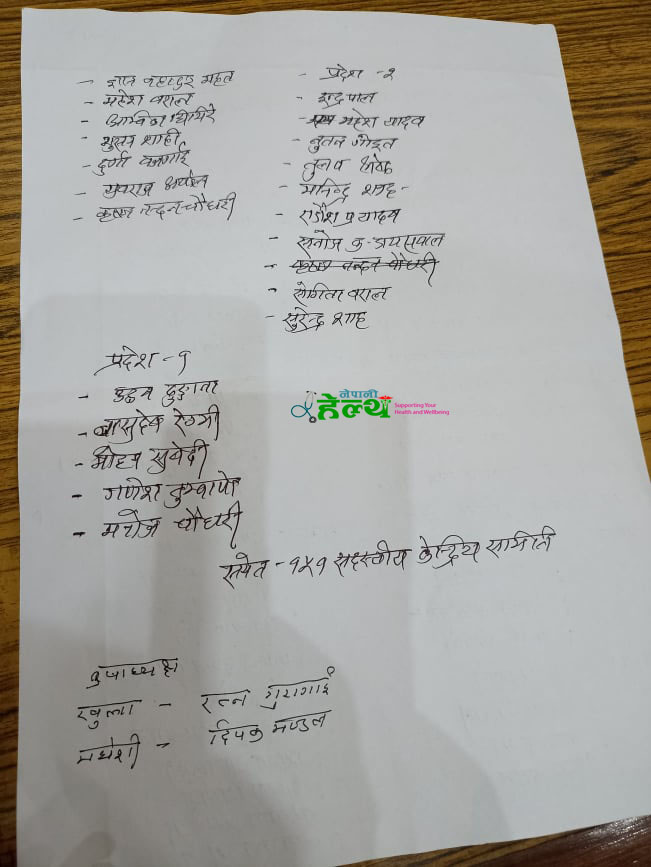 - ज्ञान बहादुर महत
- महेश बराल
- अश्विन घिमिरे
- शाही
- दुर्गा
- युवराज
- कृष्ण नन्दन चौधरी
- प्रदेश - २
- इन्द्र पाल
- महेश यादव
- नुतन
-
- मनिन्द्र शाह
- प्र यादव
- मनोज कु. जयसवाल
- कृष्ण नन्दन चौधरी
- संगिता बराल
- सुरेन्द्र शाह
प्रदेश - १
- उद्धव ढुङ्गाना
- बासुदेव रेग्मी
- मोहन सुवेदी
- गणेश तुम्बापो
- मनोज चौधरी
नेपानी
हेल्थ
Supporting Your
Health and Wellbeing
समेत - १५१ सदस्यीय केन्द्रिय समिती
उपाध्यक्ष
खुला - रत्न गुरागाई
मधेशी - दिपक मण्डल